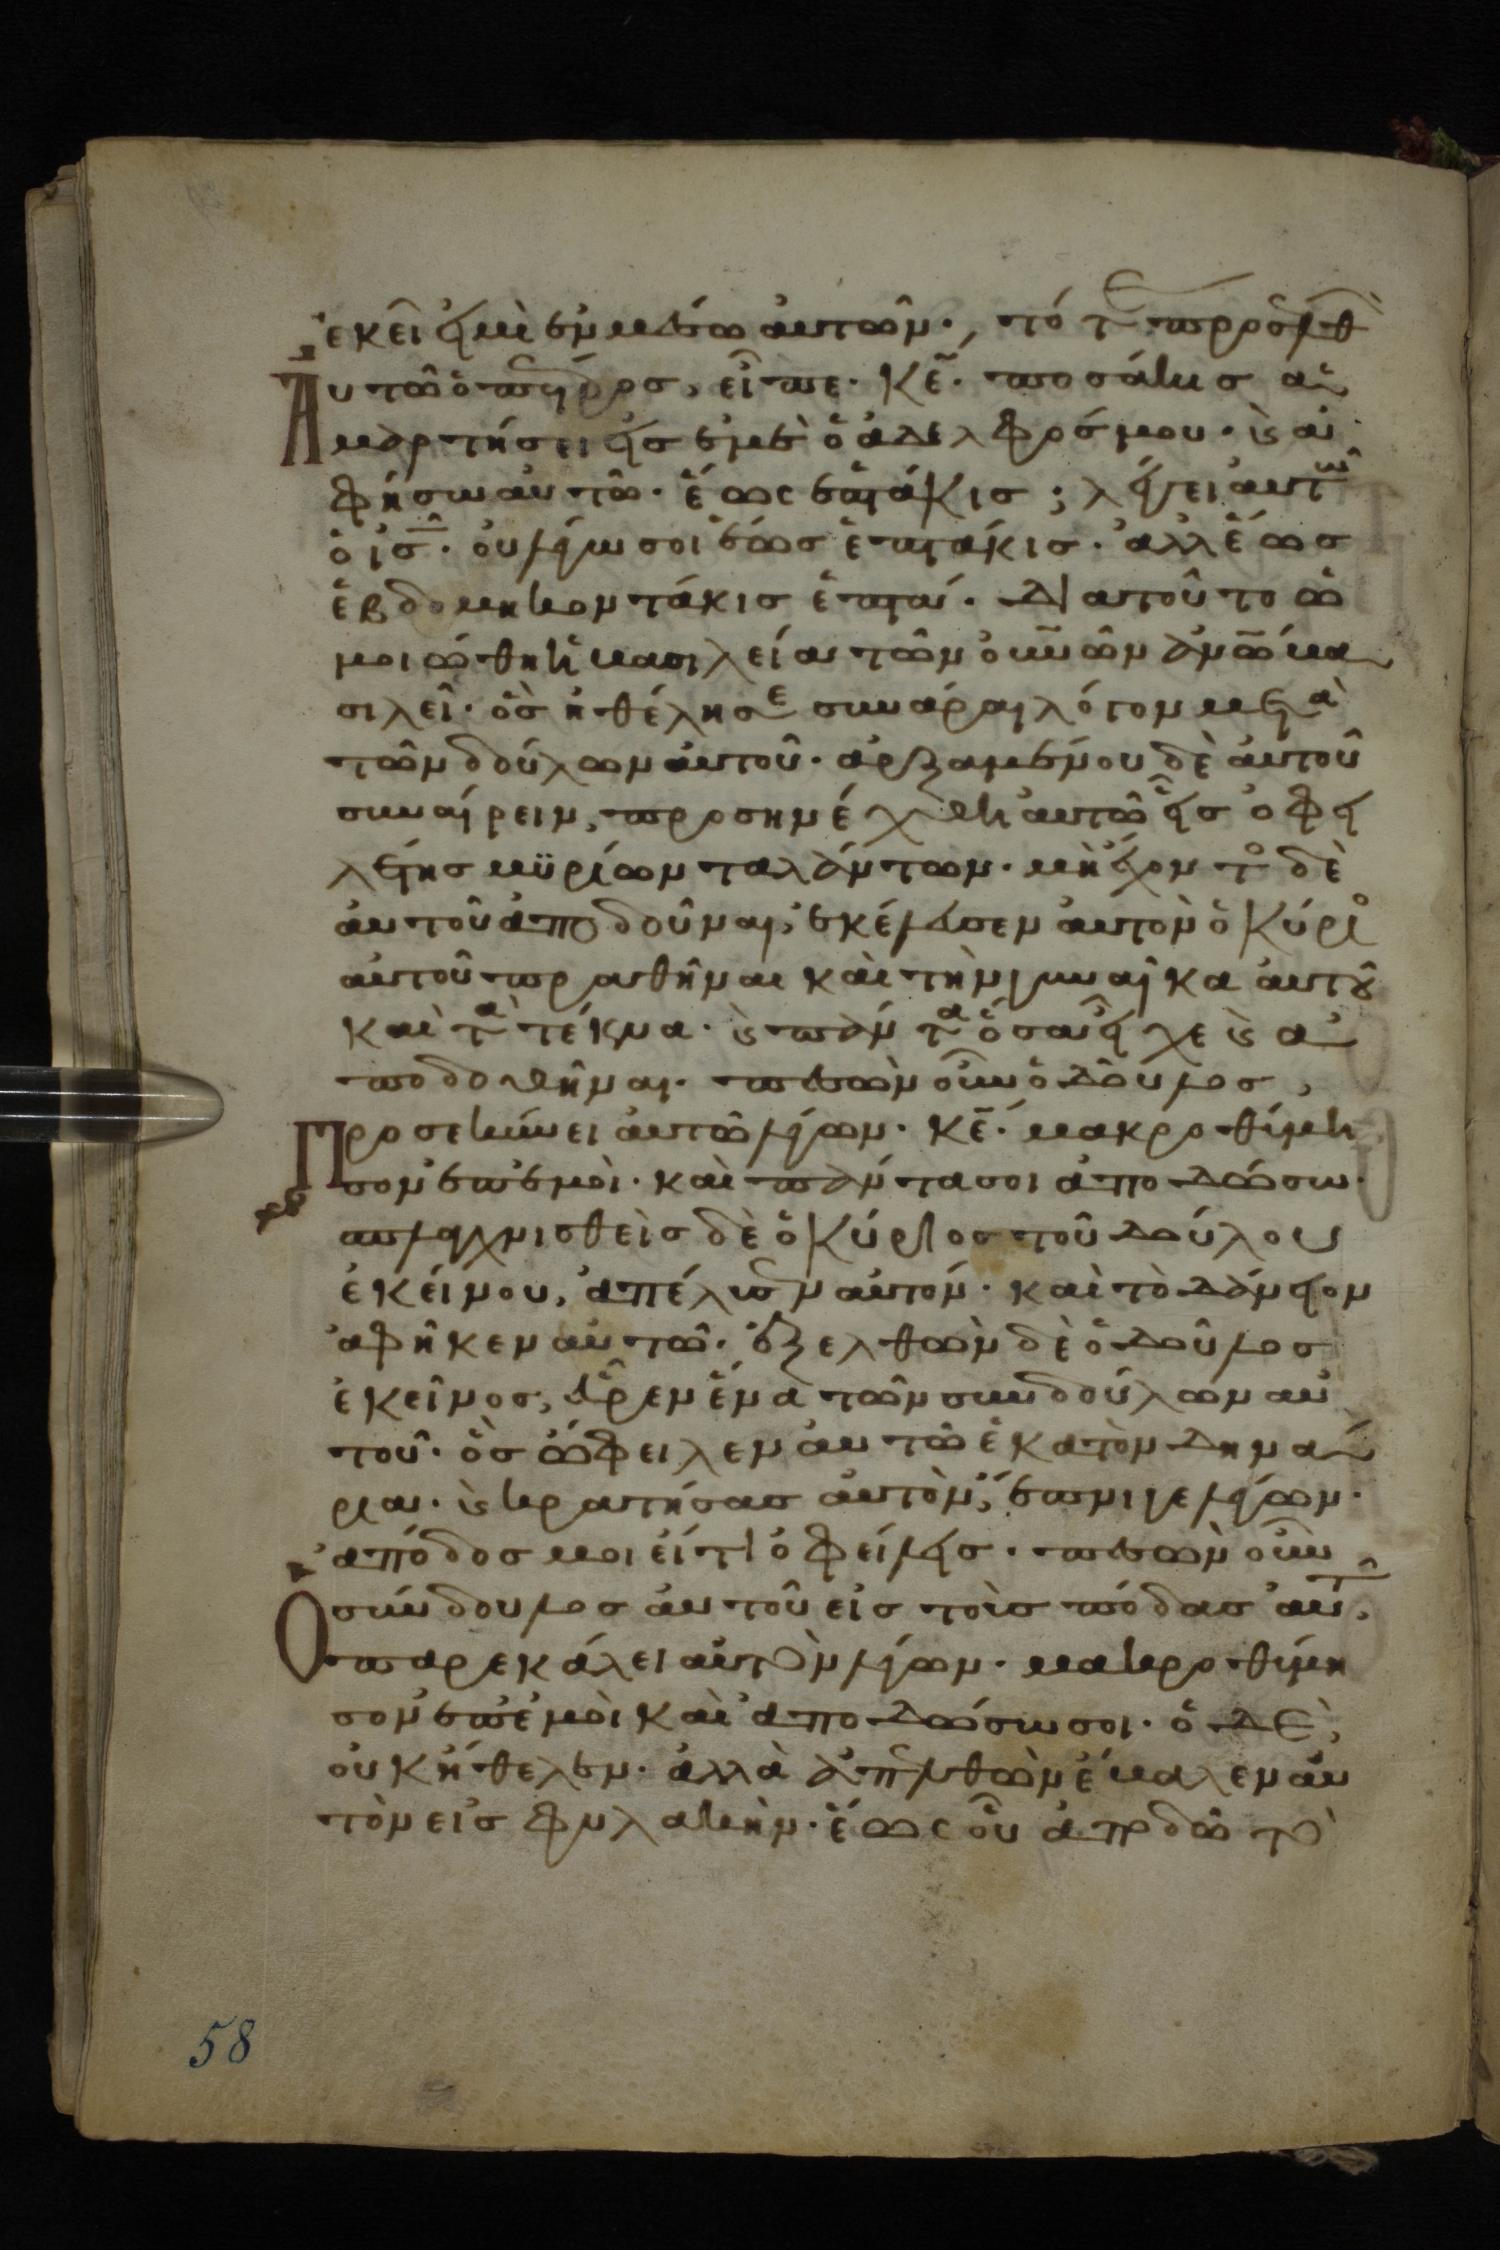 ἐκεῖ εἰμὶ ἐν μέσω αὐτῶν· τότε προσελθ
Αυτῶ ὁ πέτρος, εἶπε· κε̅· ποσάκις ἁ
μαρτήσει εἰς ἐμὲ ὁ ἀδελφός μου· καὶ ἀ
φήσω αὐτῶ· ἕως ἑπτάκις; λέγει αὐτῶ
ὁ ισ̅· οὐ λέγω σοι ἕως ἑπτάκις· ἀλλ ἕως
ἑβδομηκοντάκις ἑπτά· Διατοῦτο ὡ
μοιώθη ἡ βασιλεία τῶν οὐν̅ῶν ἀνω̅ βα
σιλεῖ· ὃς ἠθέλησε συνάραι λόγον μετὰ
τῶν δούλων αὐτοῦ· ἀρξαμένου δὲ αὐτοῦ
συναίρειν, προσηνέχθη αὐτῶ εἷς ὀφει
λέτης μϋρίων ταλάντων· μὴ ἔχοντο δὲ
αὐτοῦ ἀποδοῦναι, ἐκέλευσεν αὐτὸν ὁ κύριο
αὐτοῦ πραθῆναι καὶ τὴν γυναῖκα αὐτοῦ
καὶ τὰ τέκνα· καὶ πάντα ὅσα εἶχε καὶ ἀ
ποδοθῆναι· πεσὼν οὖν ὁ δοῦλος,
Προσεκύνει αὐτῶ λέγων· κε̅· μακροθύμη
σον ἐπ ἐμοὶ· καὶ πάντα σοι ἀποδώσω·
σπλαγχνισθεὶς δὲ ὁ κύριος τοῦ δούλου
ἐκείνου, ἀπέλυσεν αὐτόν· καὶ τὸ δάνειον
ἀφῆκεν αὐτῶ· ἐξελθὼν δὲ ὁ δοῦλος
ἐκεῖνος, εὗρεν ἕνα τῶν συνδούλων αὐ
τοῦ· ὃς ὤφειλεν αὐτῶ ἑκατὸν δηνά
ρια· καὶ κρατήσας αὐτὸν, ἔπνιγε λέγων·
ἀπόδος μοι εἴ τι ὀφείλεις· πεσὼν οὖν
Ο σύνδουλος αὐτοῦ εἰς τοὺς πόδας αὐτ,
παρεκάλει αὐτὸν λέγων· μακροθύμη
σον ἐπ ἐμοὶ καὶ ἀποδώσω σοι· ὁ δὲ,
οὐκ ἤθελεν· ἀλλὰ ἀπελθὼν ἔβαλεν αὐ
τὸν εἰς φυλακὴν· ἕως οὗ ἀποδῶ τὸ
58